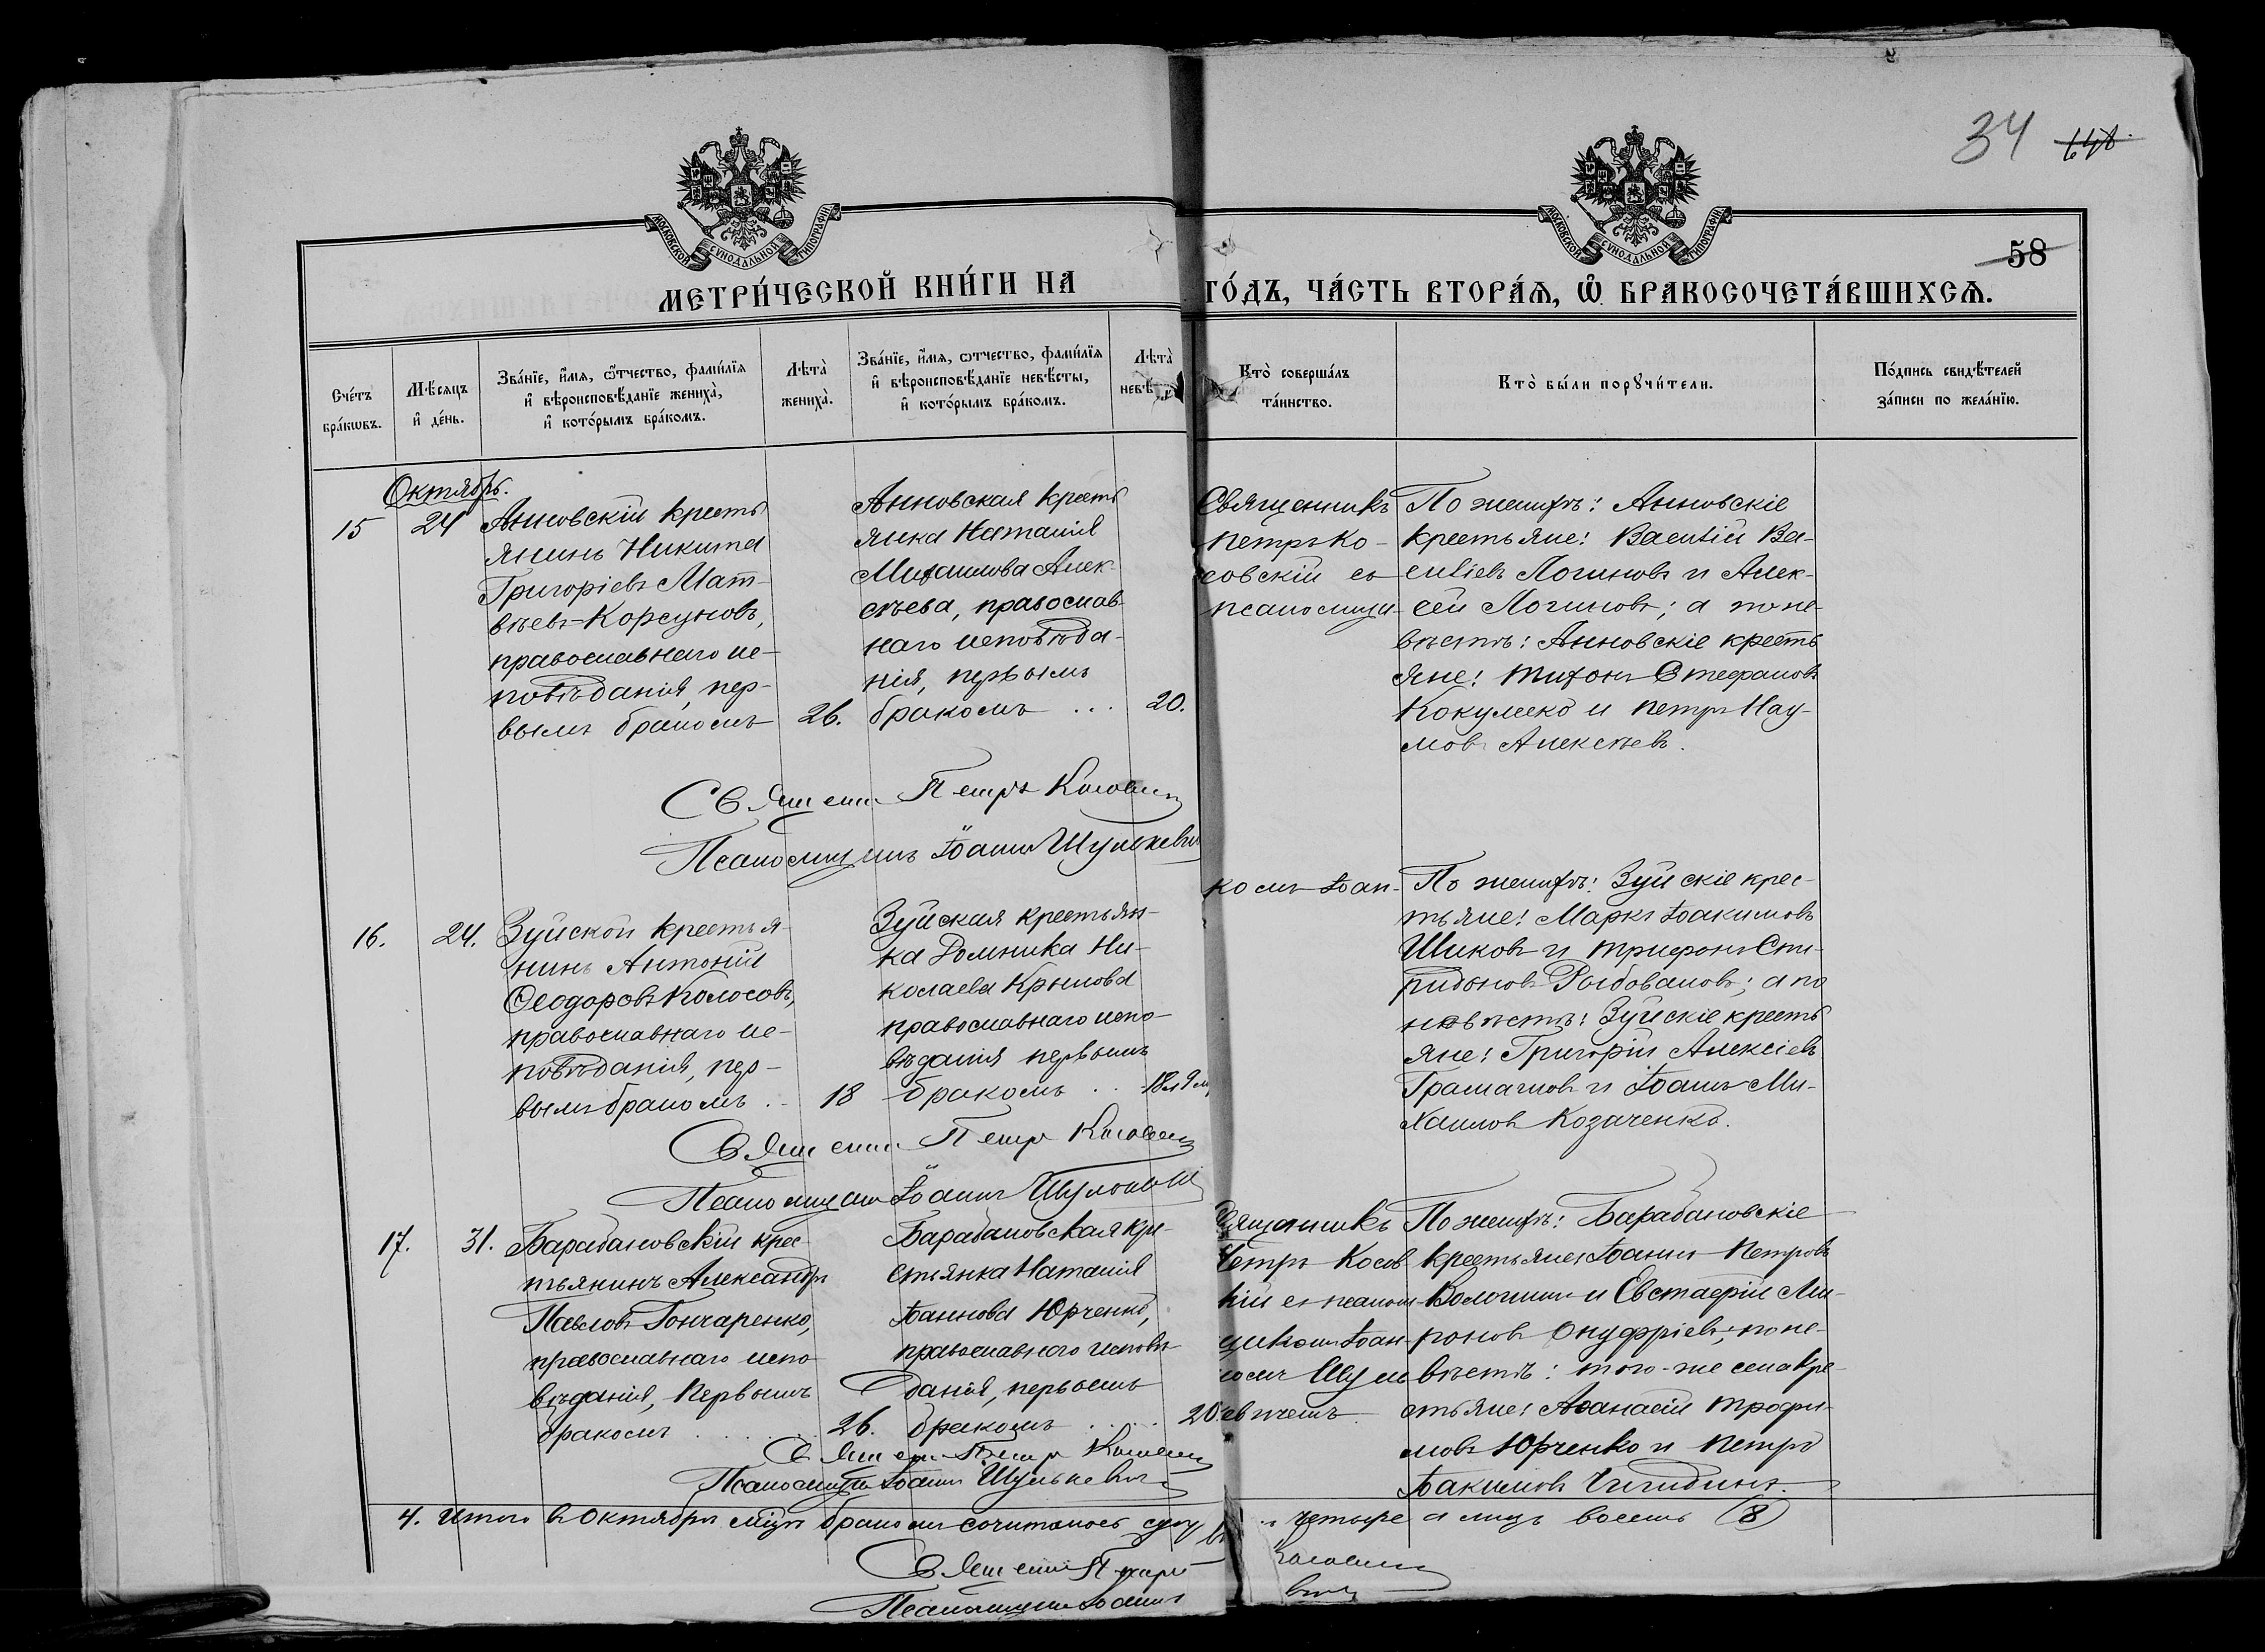 34 648.
МОСКОВСКОЙ СУНОДАЛЬНОЙ ТИПОГРАФІИ
МОСКОВСКОЙ СУНОДАЛЬНОЙ ТИПОГРАФІИ
58
МЕТРИ́ЧЕСКОЙ КНИ́ГИ НА
ГО́ДЪ, ЧА́СТЬ ВТОРА́Я, Ѡ БРАКОСОЧЕТА́ВШИХСѦ.
Сче́тъ бра́кѡвъ.
Мѣ́сяцъ и҆ де́нь.
Зва́нїе, и҆́мя, ѻ҆́тчество, фами́лїя
и҆ вѣроисповѣ́данїе жениха̀,
и҆ кото́рымъ бра́комъ.
Лѣта̀ жениха̀.
Зва́нїе, и҆́мя, ѻ҆́тчество, фами́лїя
и҆ вѣроисповѣ́данїе невѣ́сты,
и҆ кото́рымъ бра́комъ.
Лѣта̀ невѣ
Кто̀ соверша́лъ та́инство.
Кто̀ бы́ли порꙋчи́тели.
По́дпись свидѣ́телей
за́писи по жела́нїю.
Октябрь.
15
24
Анновскій кресть
янинъ Никита
Григоріевъ Мат-
вѣевъ-Корсуновъ,
православнаго ис-
повѣданія, пер-
вымъ бракомъ
26.
Анновская кресть
янка Наталія
Михаилова Алек-
сѣева, православ
наго исповѣда-
нія, первымъ
бракомъ ...
20.
Священникъ
Петръ Ко-
совскій съ
псаломщи-
По женихѣ: Анновскіе
крестьяне: Василій Ва-
силіевъ Логиновъ и Алек-
сѣй Логиновъ; а по не-
вѣстѣ: Анновскіе кресть
яне: Тихонъ Стефановъ
Кокулеко и Петръ Нау-
мовъ Алексѣевъ.
Священн. Петръ Косовскі
Псаломщикъ Іоаннъ Шулькевич
16.
24.
Зуйской крестья-
нинъ Антоній
Ѳеодоровъ Колосовъ,
православнаго ис-
повѣданія, пер-
вымъ бракомъ ..
18
Зуйская крестьян-
ка Домника Ни-
колаева Крылова
православнаго испо-
вѣданія первымъ
бракомъ ..
18 л 9 м
комъ Іоан-
По женихѣ: Зуйскіе крес-
тьяне: Маркъ Іоакимовъ
Шиковъ и Трифонъ Спи-
ридоновъ Рыбоваловъ; а по
невѣстѣ: Зуйскіе кресть
яне: Григорій Алексіевъ
и Іоаннъ Ми-
хаиловъ Козаченко.
Священн. Петръ Косовскі
Псаломщикъ Іоаннъ
17.
31.
Барабановскій крес-
тьянинъ Александръ
Павловъ Гончаренко,
православнаго испо
вѣданія, первымъ
бракомъ
26.
Барабановская кре-
стьянка Наталія
Іоаннова Юрченко,
православнаго исповѣ
данія, первымъ
бракомъ
20.
Священникъ
Петръ Косов
кій съ псалом
щикомъ Іоан-
номъ Шуль
кевичемъ
По женихѣ: Барабановскіе
крестьяне: Іоаннъ Петровъ
и Евстафій Ми-
роновъ Онуфріевъ; по не-
вѣстѣ: того-же села кре-
стьяне: Аѳанасій Трофи-
мовъ Юрченко и Петръ
Іоакимовъ
Священ. Петръ Косовскі
Псаломщикъ Іоаннъ Шулькевич
4. Итого въ Октябрѣ мцѣ бракомъ сочиталось
четыре а лицъ восемь (8)
Священникъ Петръ
Косовскі
Псаломщикъ Іоаннъ